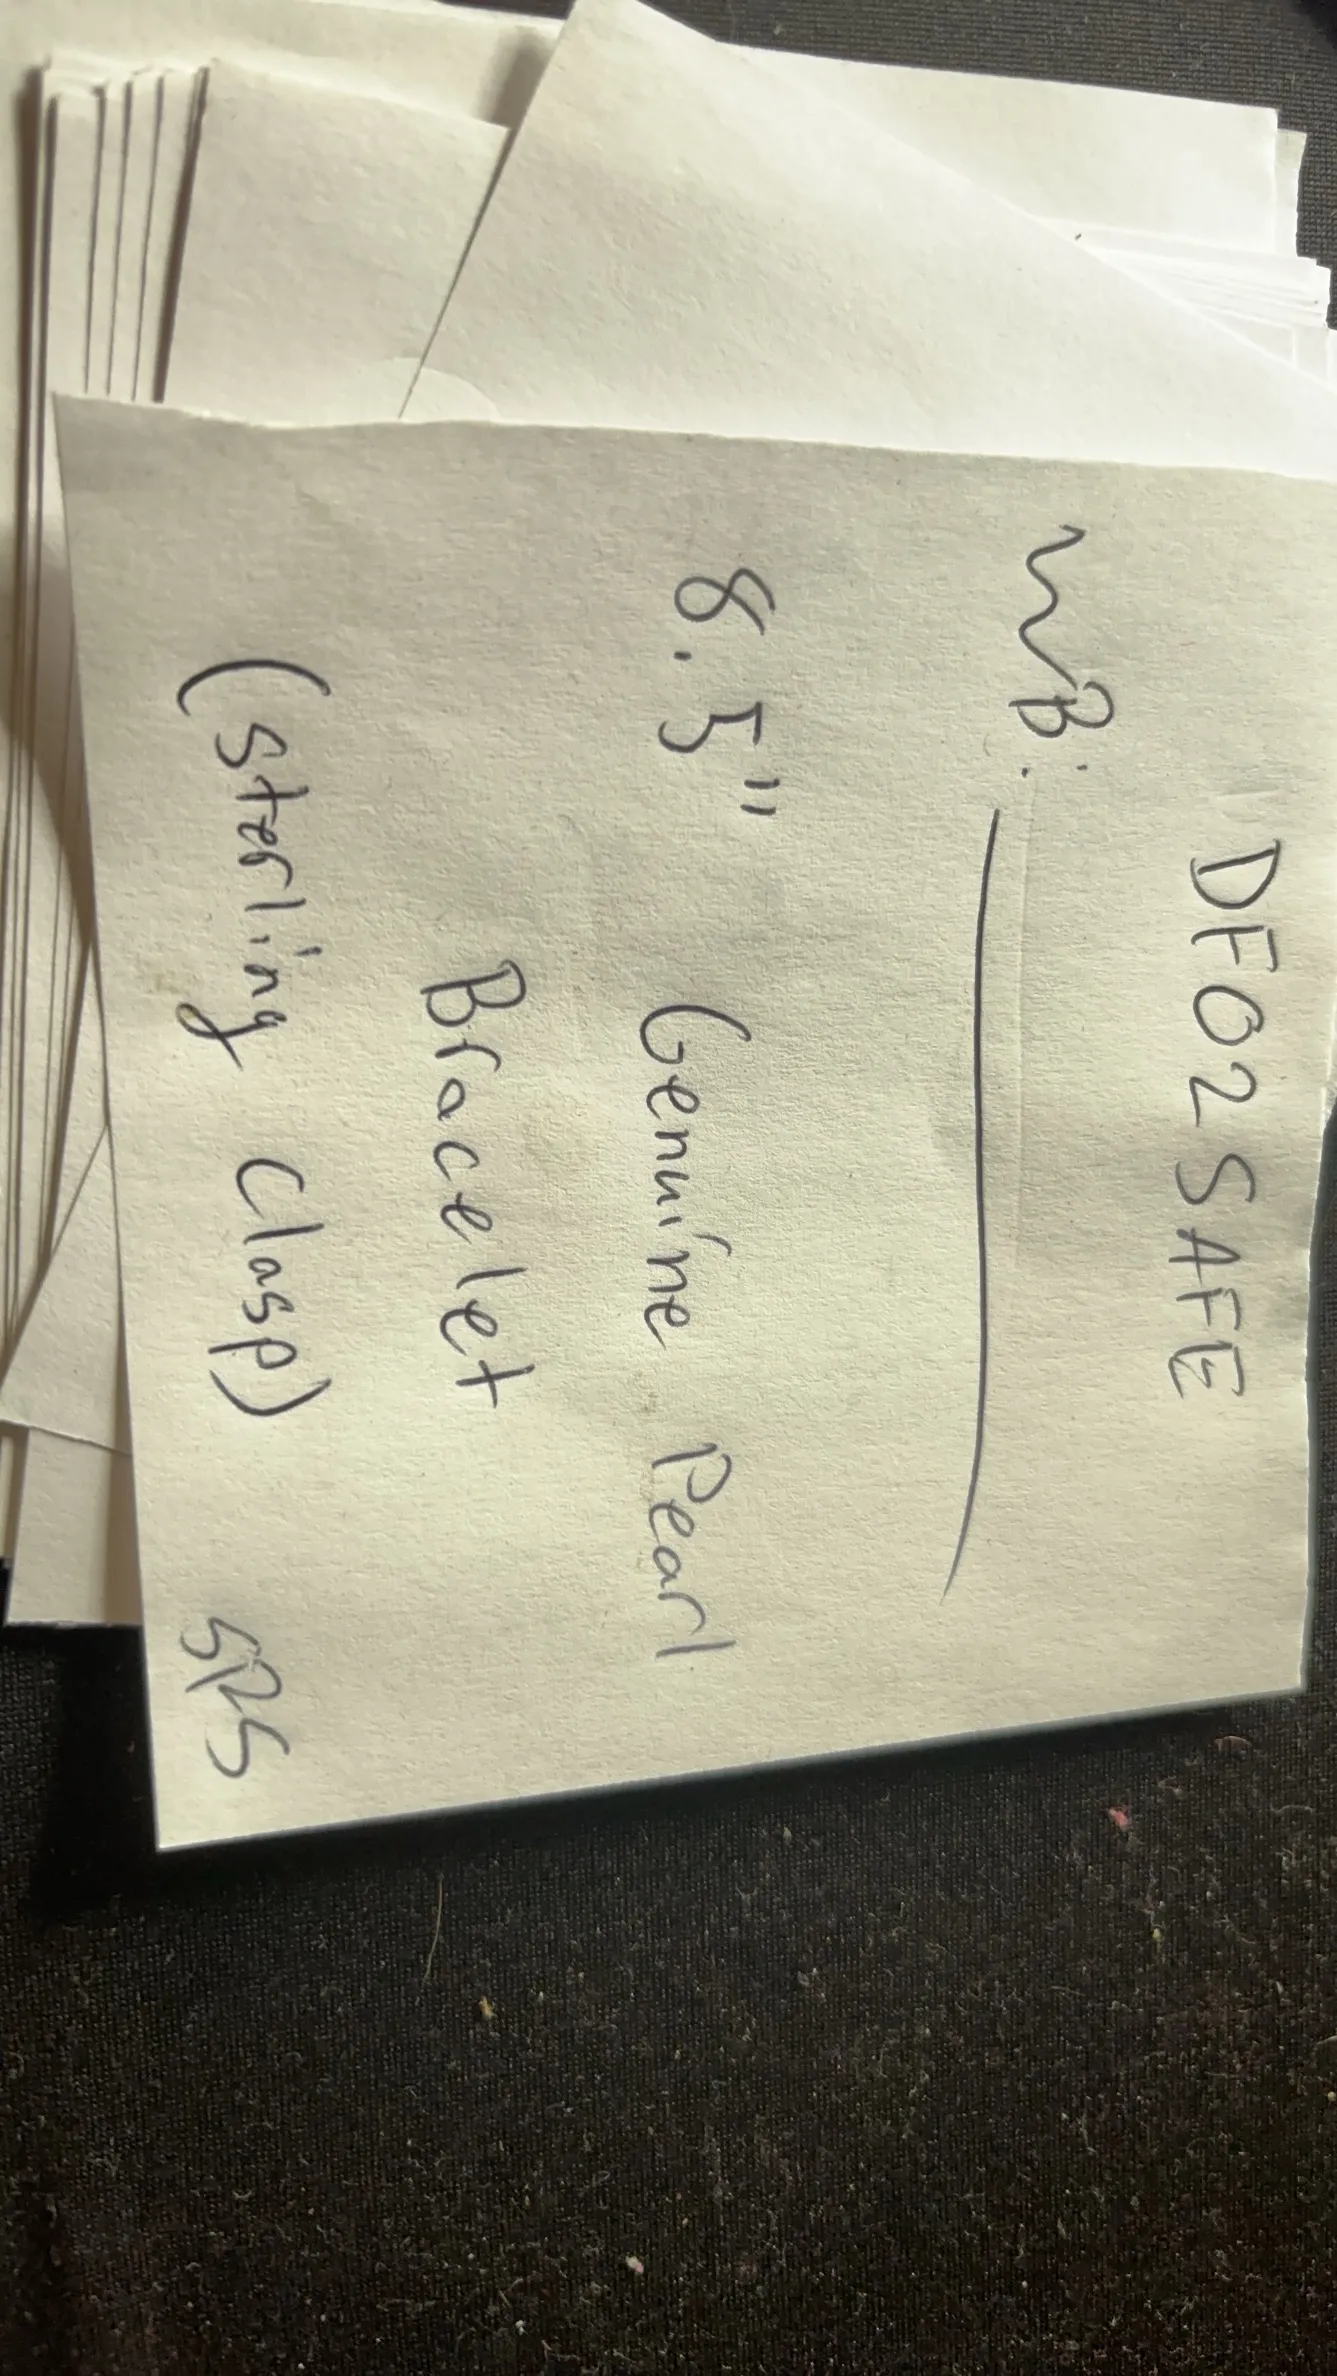 DF02SAFE
B:
8.5" Genuine Pearl
Bracelet
(Sterling Clasp) SRS